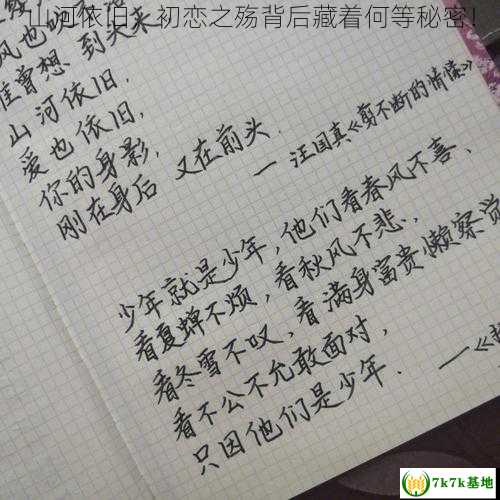 山河依旧：初恋之殇背后藏着何等秘密！
风也
谁曾想 到头来
山河依旧，
爱也依旧，
你的身影，
刚在身后 又在前头．
— 汪国真《剪不断的情愫》
少年就是少年，他们看春风不喜、
看夏蝉不烦，看秋风不悲，
看冬雪不叹，看满身富贵懒察觉
看不公不允敢面对，
只因他们是少年．
—《
7k7k基地